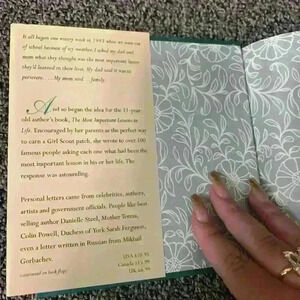 It all began one wintry week in 1993 when we were out
of school because of icy weather. I asked my dad and
mom what they thought was the most important lesson
they'd learned in their lives. My dad said it was to
persevere. . . . My mom said . . . family.
And so began the idea for the 11-year
old author's book, The Most Important Lessons in
Life. Encouraged by her parents as the perfect way
to earn a Girl Scout patch, she wrote to over 100
famous people asking each one what had been the
most important lesson in his or her life. The
response was astounding.
Personal letters came from celebrities, authors,
artists and government officials. People like best
selling author Danielle Steel, Mother Teresa,
Colin Powell, Duchess of York Sarah Ferguson,
even a letter written in Russian from Mikhail
Gorbachev.
(continued on back flap)
USA
Canada
UK